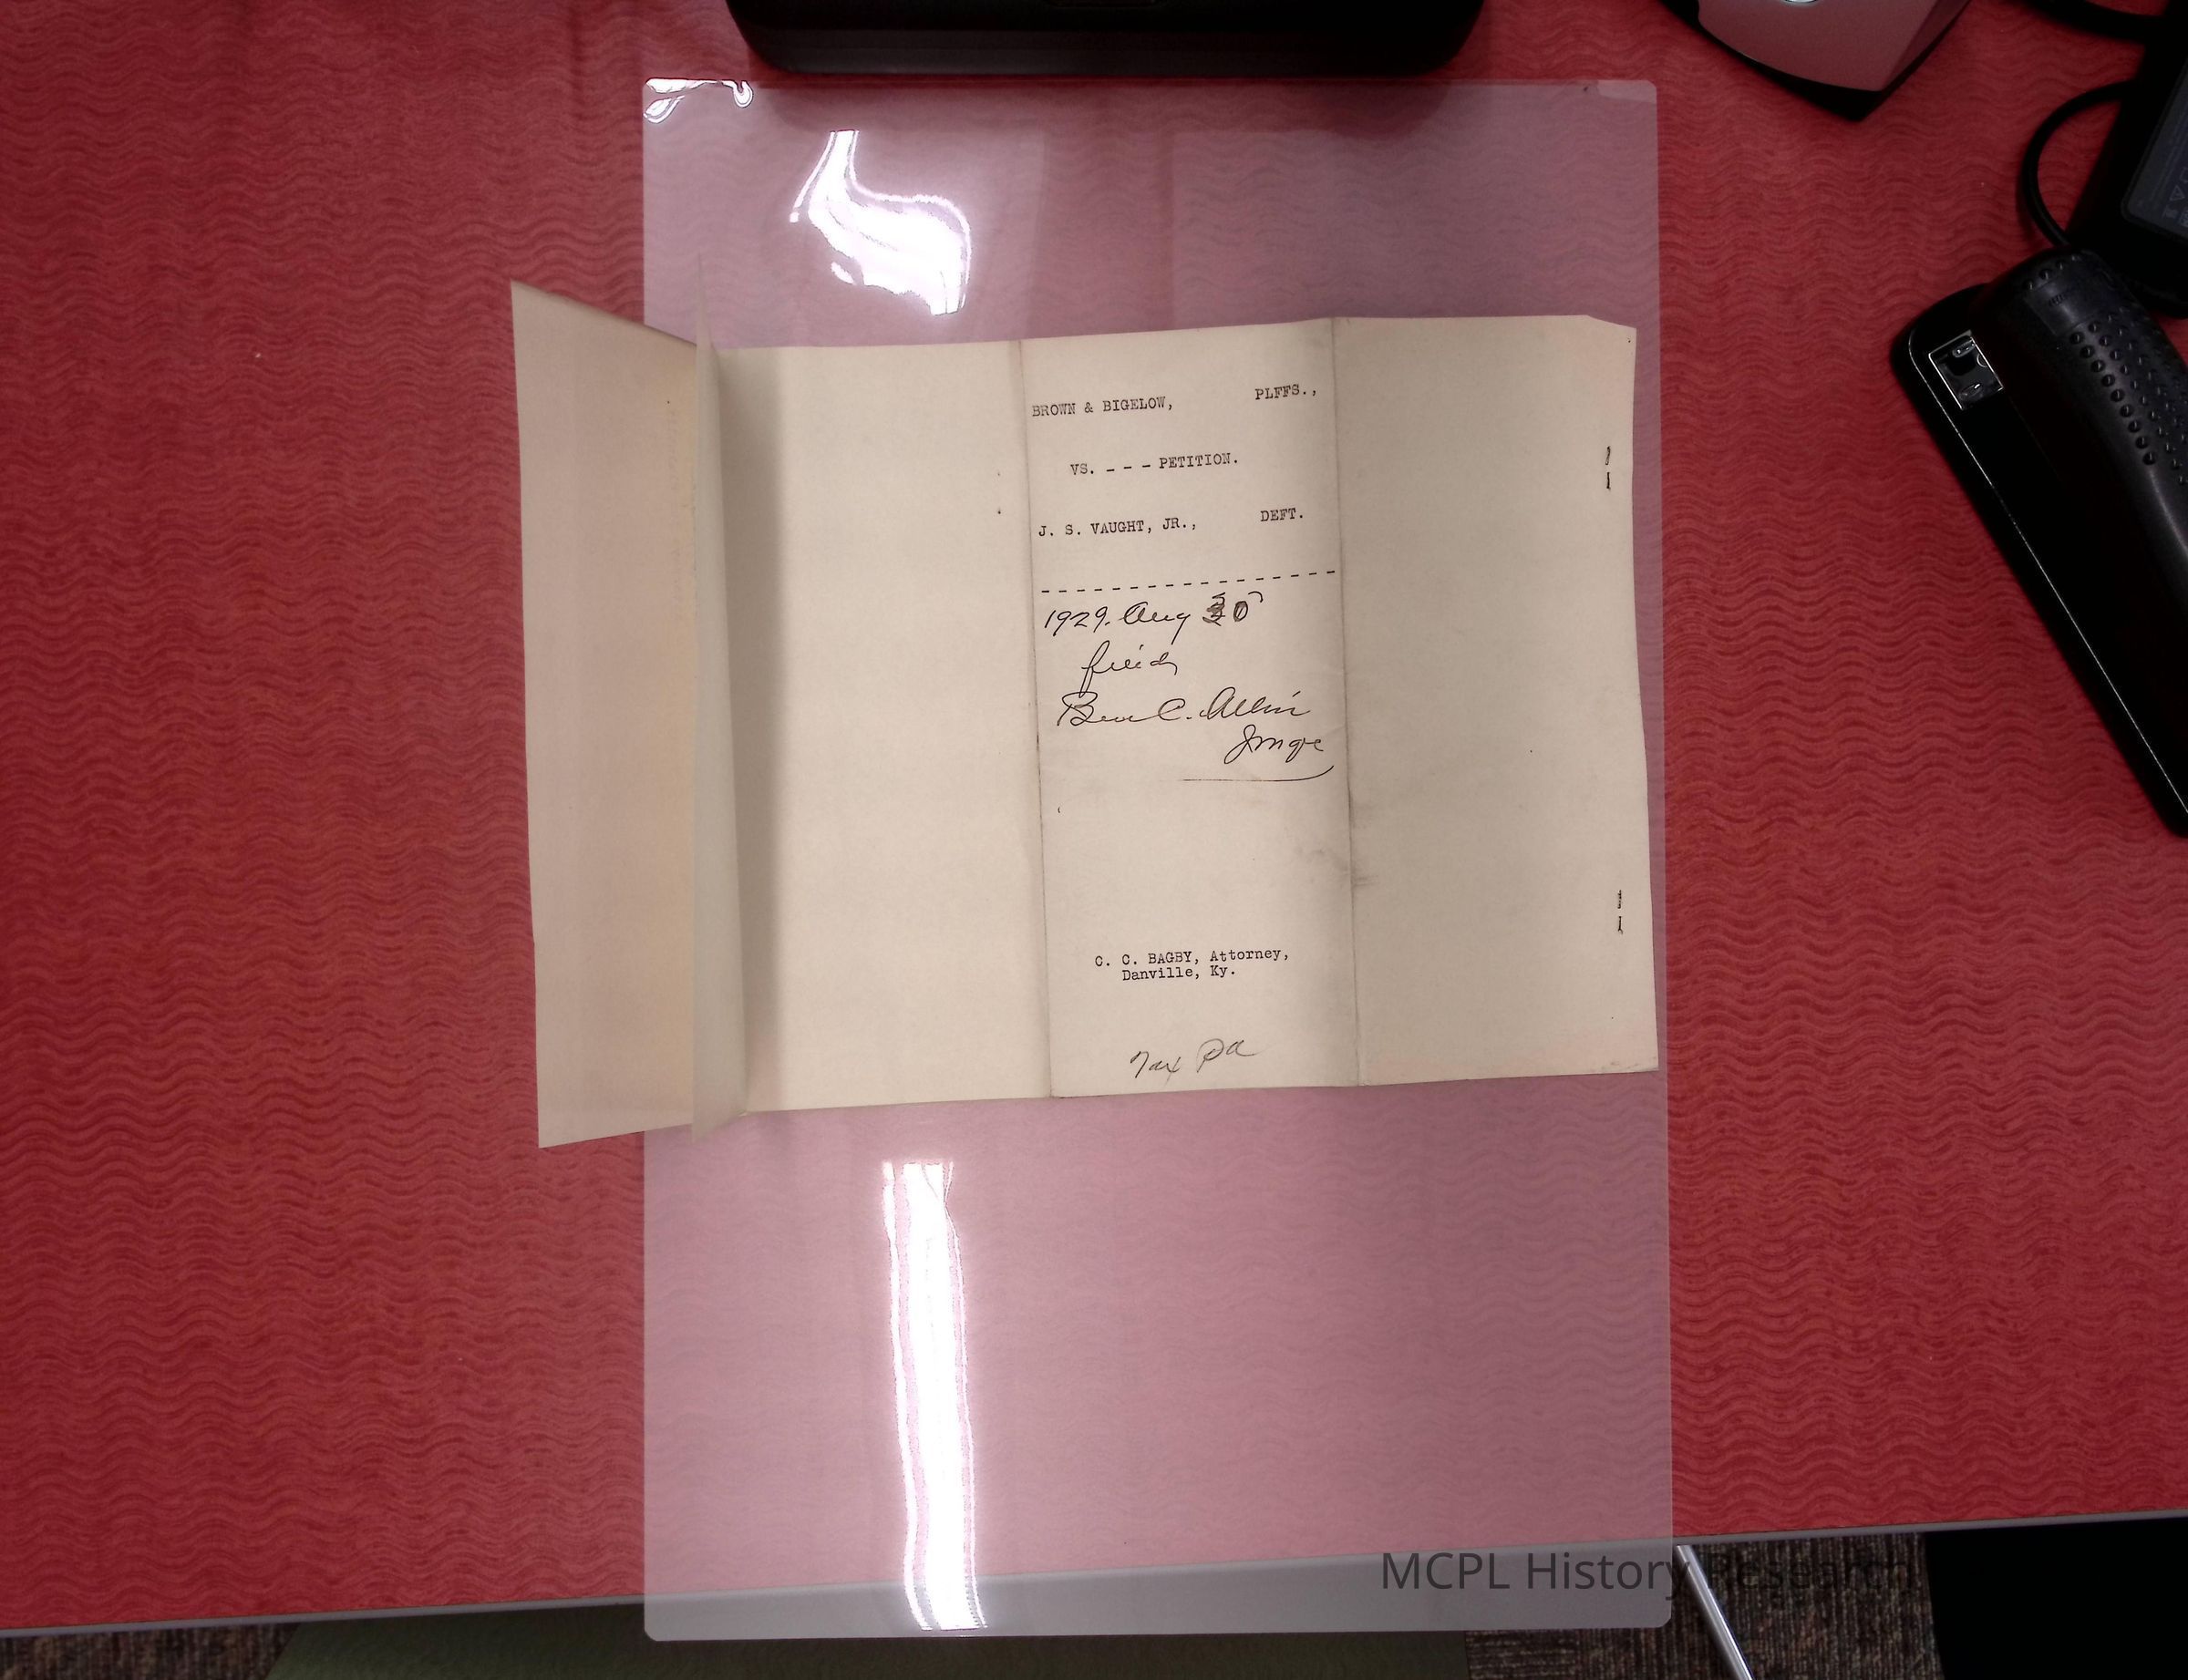 BROWN & BIGELOW, PLFFS.,
VS. - - - PETITION.
J. S. VAUGHT, JR., DEFT.
- - - - - - - - - - - - - - - - - -
1929. Aug
filed
Ben C. Allin
Judge
C. C. BAGBY, Attorney,
Danville, Ky.
Tax Pd
MCPL History Research